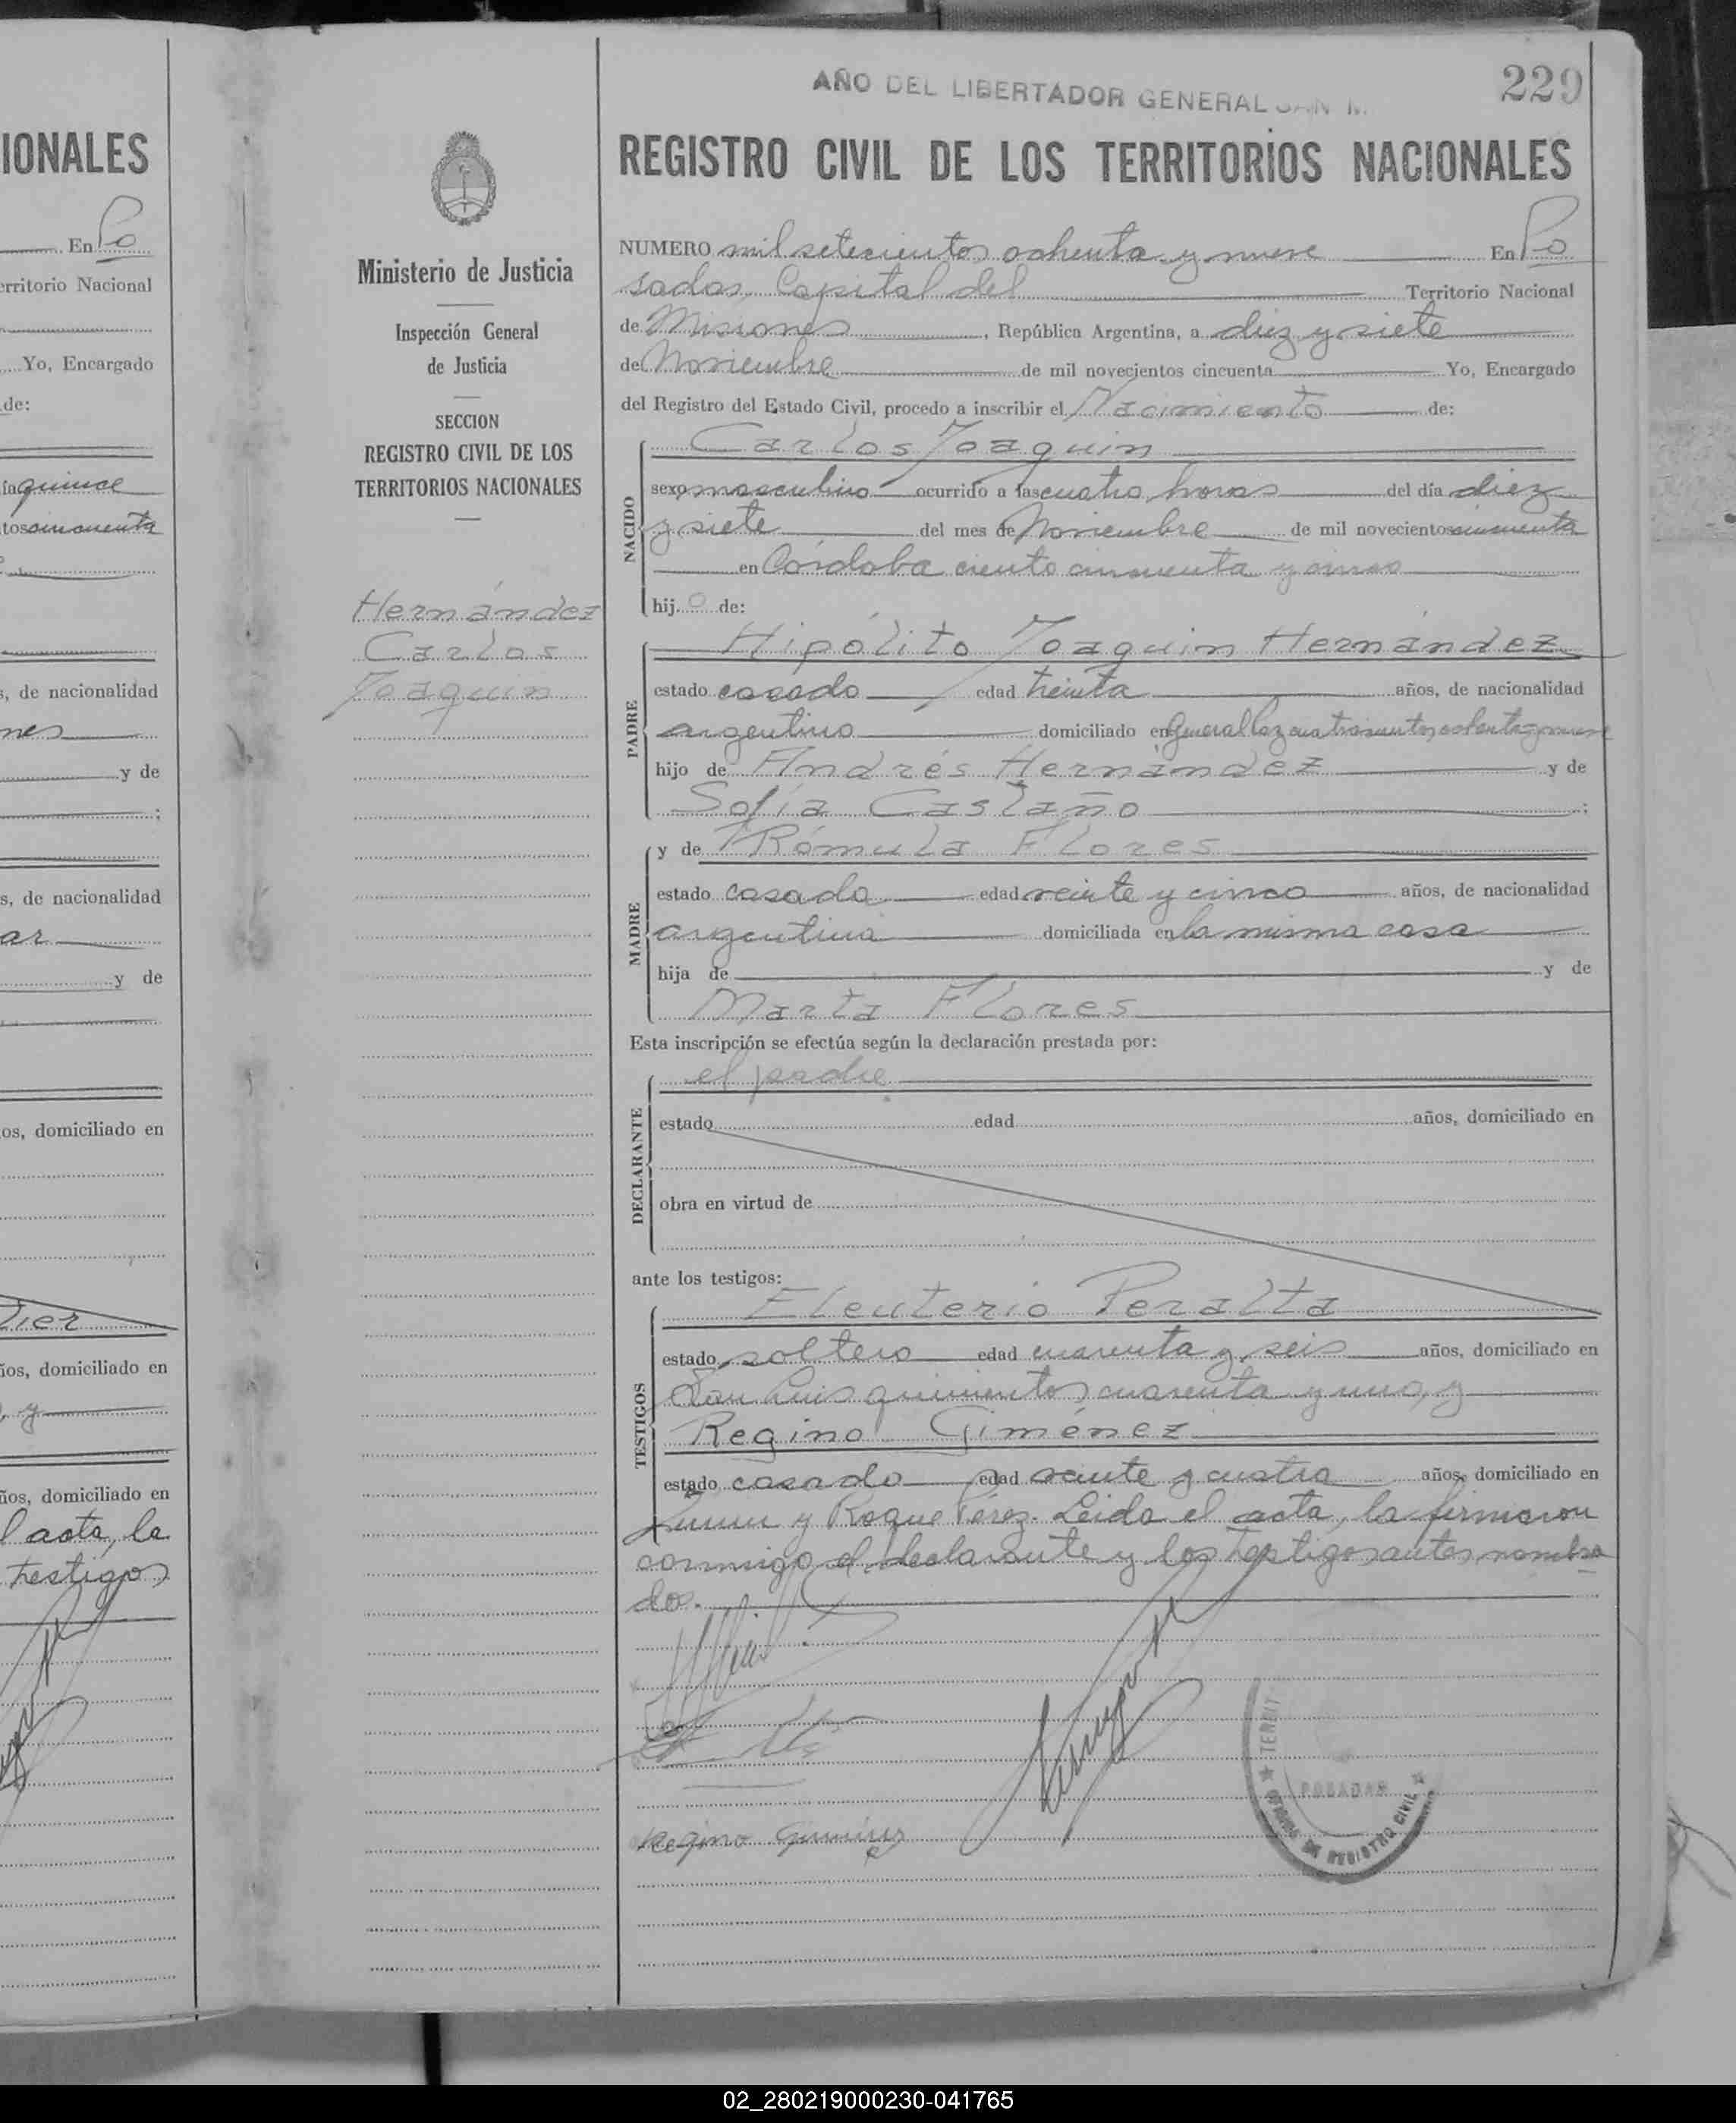 IONALES
En Po
erritorio Nacional
Yo, Encargado
de:
ía quince
tos cincuenta
s, de nacionalidad
nes
y de
s, de nacionalidad
ar
y de
os, domiciliado en
tier
ños, domiciliado en
, y
ños, domiciliado en
l acta, la
testigos
Ministerio de Justicia
Inspección General
de Justicia
SECCION
REGISTRO CIVIL DE LOS
TERRITORIOS NACIONALES
Hernández
Carlos
Joaquin
AÑO DEL LIBERTADOR GENERAL SAN M
229
REGISTRO CIVIL DE LOS TERRITORIOS NACIONALES
NUMERO mil setecientos ochenta y nueve En Po
sadas, Capital del Territorio Nacional
de Misiones, República Argentina, a diez y siete
de Noviembre de mil novecientos cincuenta Yo, Encargado
del Registro del Estado Civil, procedo a inscribir el Nacimiento de:
NACIDO
Carlos Joaquin
sexo masculino ocurrido a las cuatro horas del día diez
y siete del mes de Noviembre de mil novecientos cincuenta
en Córdoba ciento cincuenta y cinco
hijo de:
PADRE
Hipólito Joaquin Hernández
estado casado edad treinta años, de nacionalidad
argentino domiciliado en General Paz cuatrocientos ochenta y nueve
hijo de Andrés Hernández y de
Sofía Castaño;
MADRE
y de Rómula Flores
estado casada edad veinte y cinco años, de nacionalidad
argentina domiciliada en la misma casa
hija de y de
Marta Flores
Esta inscripción se efectúa según la declaración prestada por:
DECLARANTE
el padre
estado edad años, domiciliado en
obra en virtud de
ante los testigos:
TESTIGOS
Eleuterio Peralta
estado soltero edad cuarenta y seis años, domiciliado en
San Luis quinientos cuarenta y uno, y
Regino Giménez
estado casado edad veinte y cuatro años, domiciliado en
y Roque Pérez. Leida el acta, la firmaron
conmigo el declarante y los testigos antes nombra
dos.
Regino Gimenez
TERRIT
POSADAS
OFICINA DE REGISTRO CIVIL
02_280219000230-041765